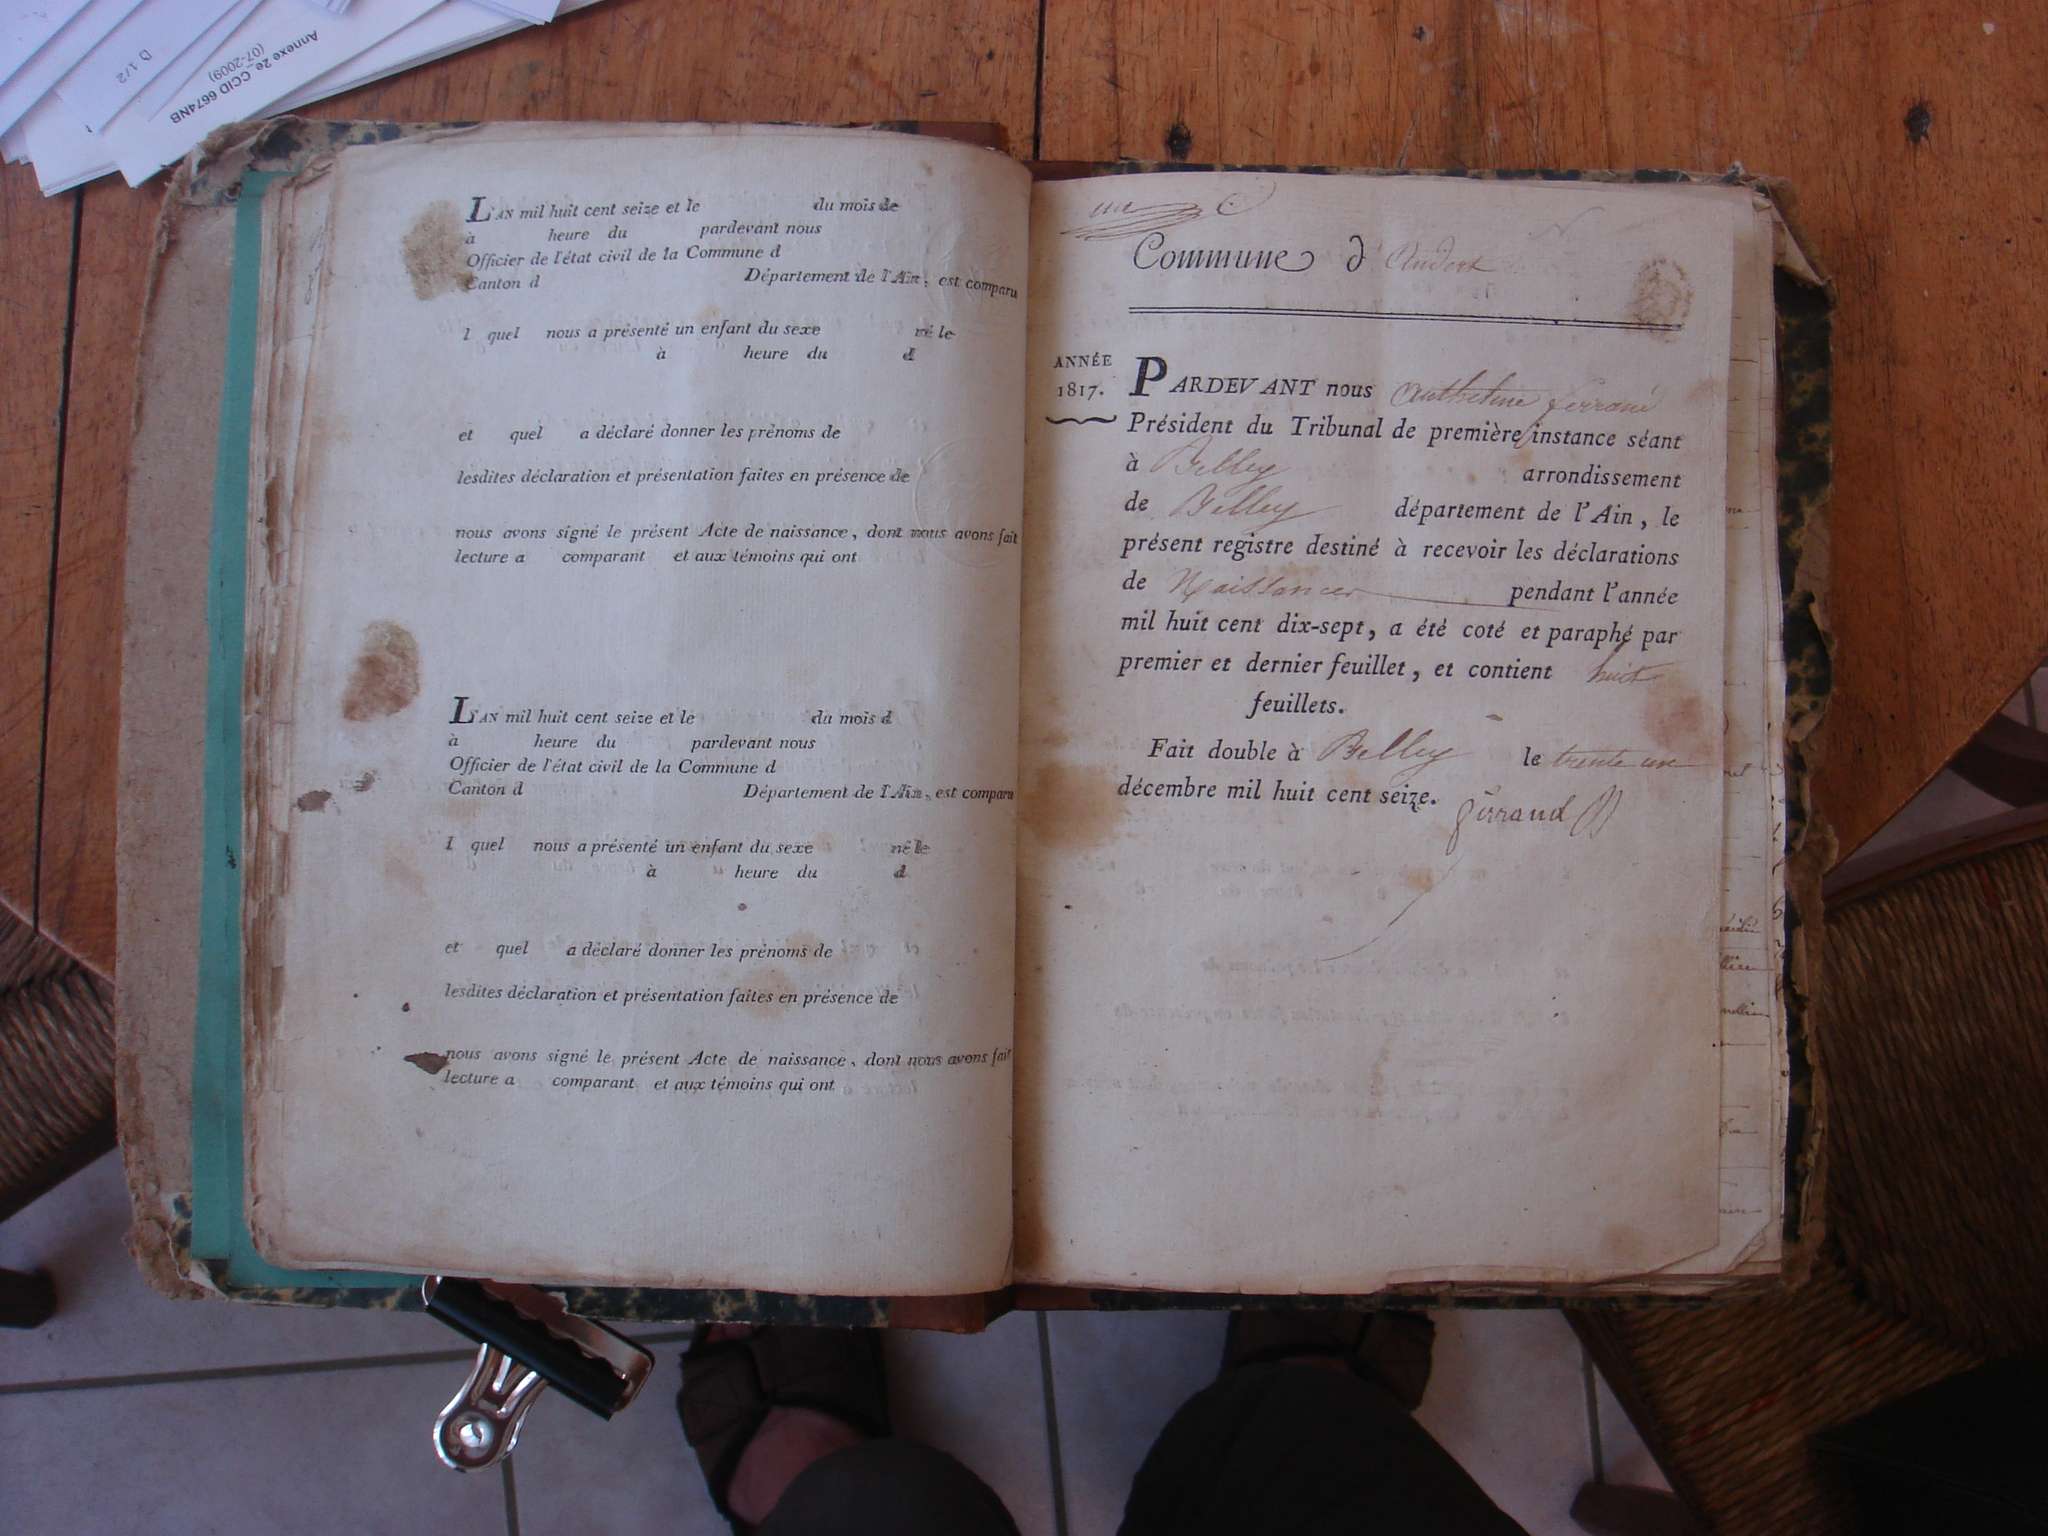 Annexe 2e_CCID 6674NB
(07-2009)
D 1/2
L'AN mil huit cent seize et le du mois de
à heure du pardevant nous
Officier de l'état civil de la Commune d
Canton d Département de l'Ain, est comparu
l quel nous a présenté un enfant du sexe né le
à heure du d
et quel a déclaré donner les prénoms de
lesdites déclaration et présentation faites en présence de
nous avons signé le présent Acte de naissance, dont nous avons fait
lecture a comparant et aux témoins qui ont
L'AN mil huit cent seize et le du mois d
à heure du pardevant nous
Officier de l'état civil de la Commune d
Canton d Département de l'Ain, est comparu
l quel nous a présenté un enfant du sexe né le
à heure du d
et quel a déclaré donner les prénoms de
lesdites déclaration et présentation faites en présence de
nous avons signé le présent Acte de naissance, dont nous avons fait
lecture a comparant et aux témoins qui ont
Commune d' Andert
ANNÉE
1817.
PARDEVANT nous Anthelme ferrand
Président du Tribunal de première instance séant
à Belley arrondissement
de Belley département de l'Ain, le
présent registre destiné à recevoir les déclarations
de Naissances pendant l'année
mil huit cent dix-sept, a été coté et paraphé par
premier et dernier feuillet, et contient huit
feuillets.
Fait double à Belley le trente un
décembre mil huit cent seize.